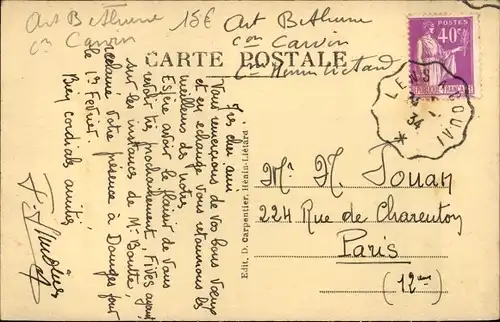 Art Béthune
con Carvin
15€
Art Béthune
con Carvin
Cne Hénin Liétard
CARTE POSTALE
POSTES
40c
RÉPUBLIQUE FRANÇAISE
LENS DOUAI
34
Très cher ami
Vous remercions de vos bons vœux
et en échange vous retournons les
meilleurs des nôtres.
Espère avoir le plaisir de vous
revoir très prochainement, FIVES ayant,
sur les instances de Mr Boutte,
réclamé votre présence à Dourges pour
le 1er Février.
Bien cordiales amitiés,
Edit. D. Carpentier, Hénin-Liétard
Mr H. Touan
224 Rue de Charenton
Paris
(12ème)